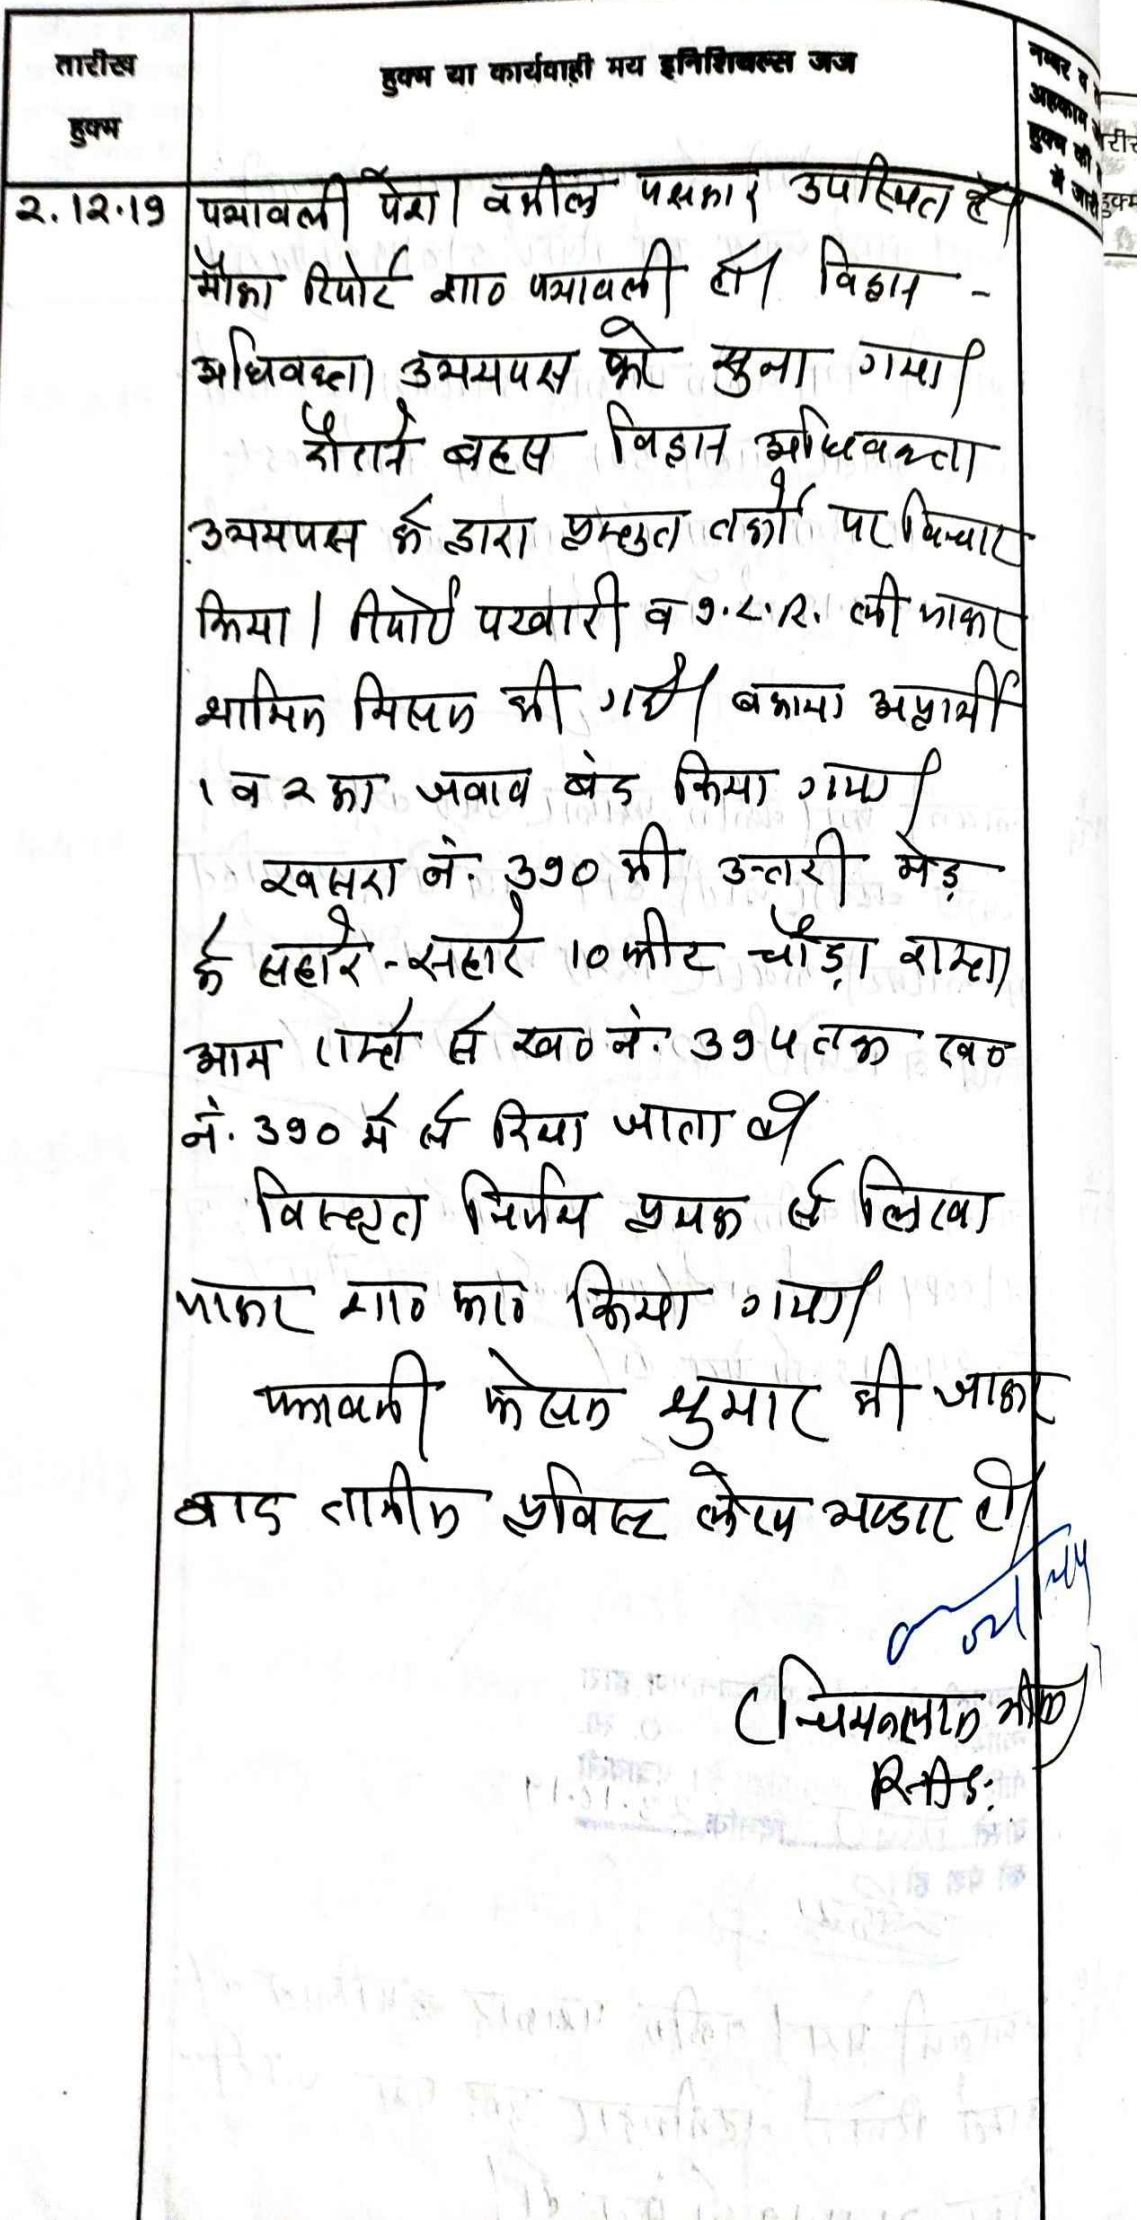 तारीख
हुक्म
हुक्म या कार्यवाही मय इनिशियल्स जज
नम्बर व
अहकाम
हुक्म की
में जारी
2.12.19
पत्रावली पेश। वकील पक्षकार उपस्थित है।
मौका रिपोर्ट शा० पत्रावली हो। विद्वान -
अधिवक्ता उभयपक्ष को सुना गया।
दौराने बहस विद्वान अधिवक्ता
उभयपक्ष के द्वारा प्रस्तुत तर्को पर विचार
किया। रिपोर्ट पटवारी व जाकर
शामिल मिसल की गई। बकाया अप्रार्थी
1 व 2 का जवाब बंद किया गया।
खसरा नं. 390 की उत्तरी मेड़
के सहारे-सहारे 10 फीट चौड़ा रास्ता
आम रास्ते से ख० नं. 394 तक ख०
नं. 390 में से दिया जाता है।
विस्तृत निर्णय पृथक से लिखा
जाकर शा० का० किया गया।
पत्रावली फैसल शुमार की जाकर
बाद तामील प्रविष्ट लेख भण्डार हो।
(चिमनलाल मीणा)